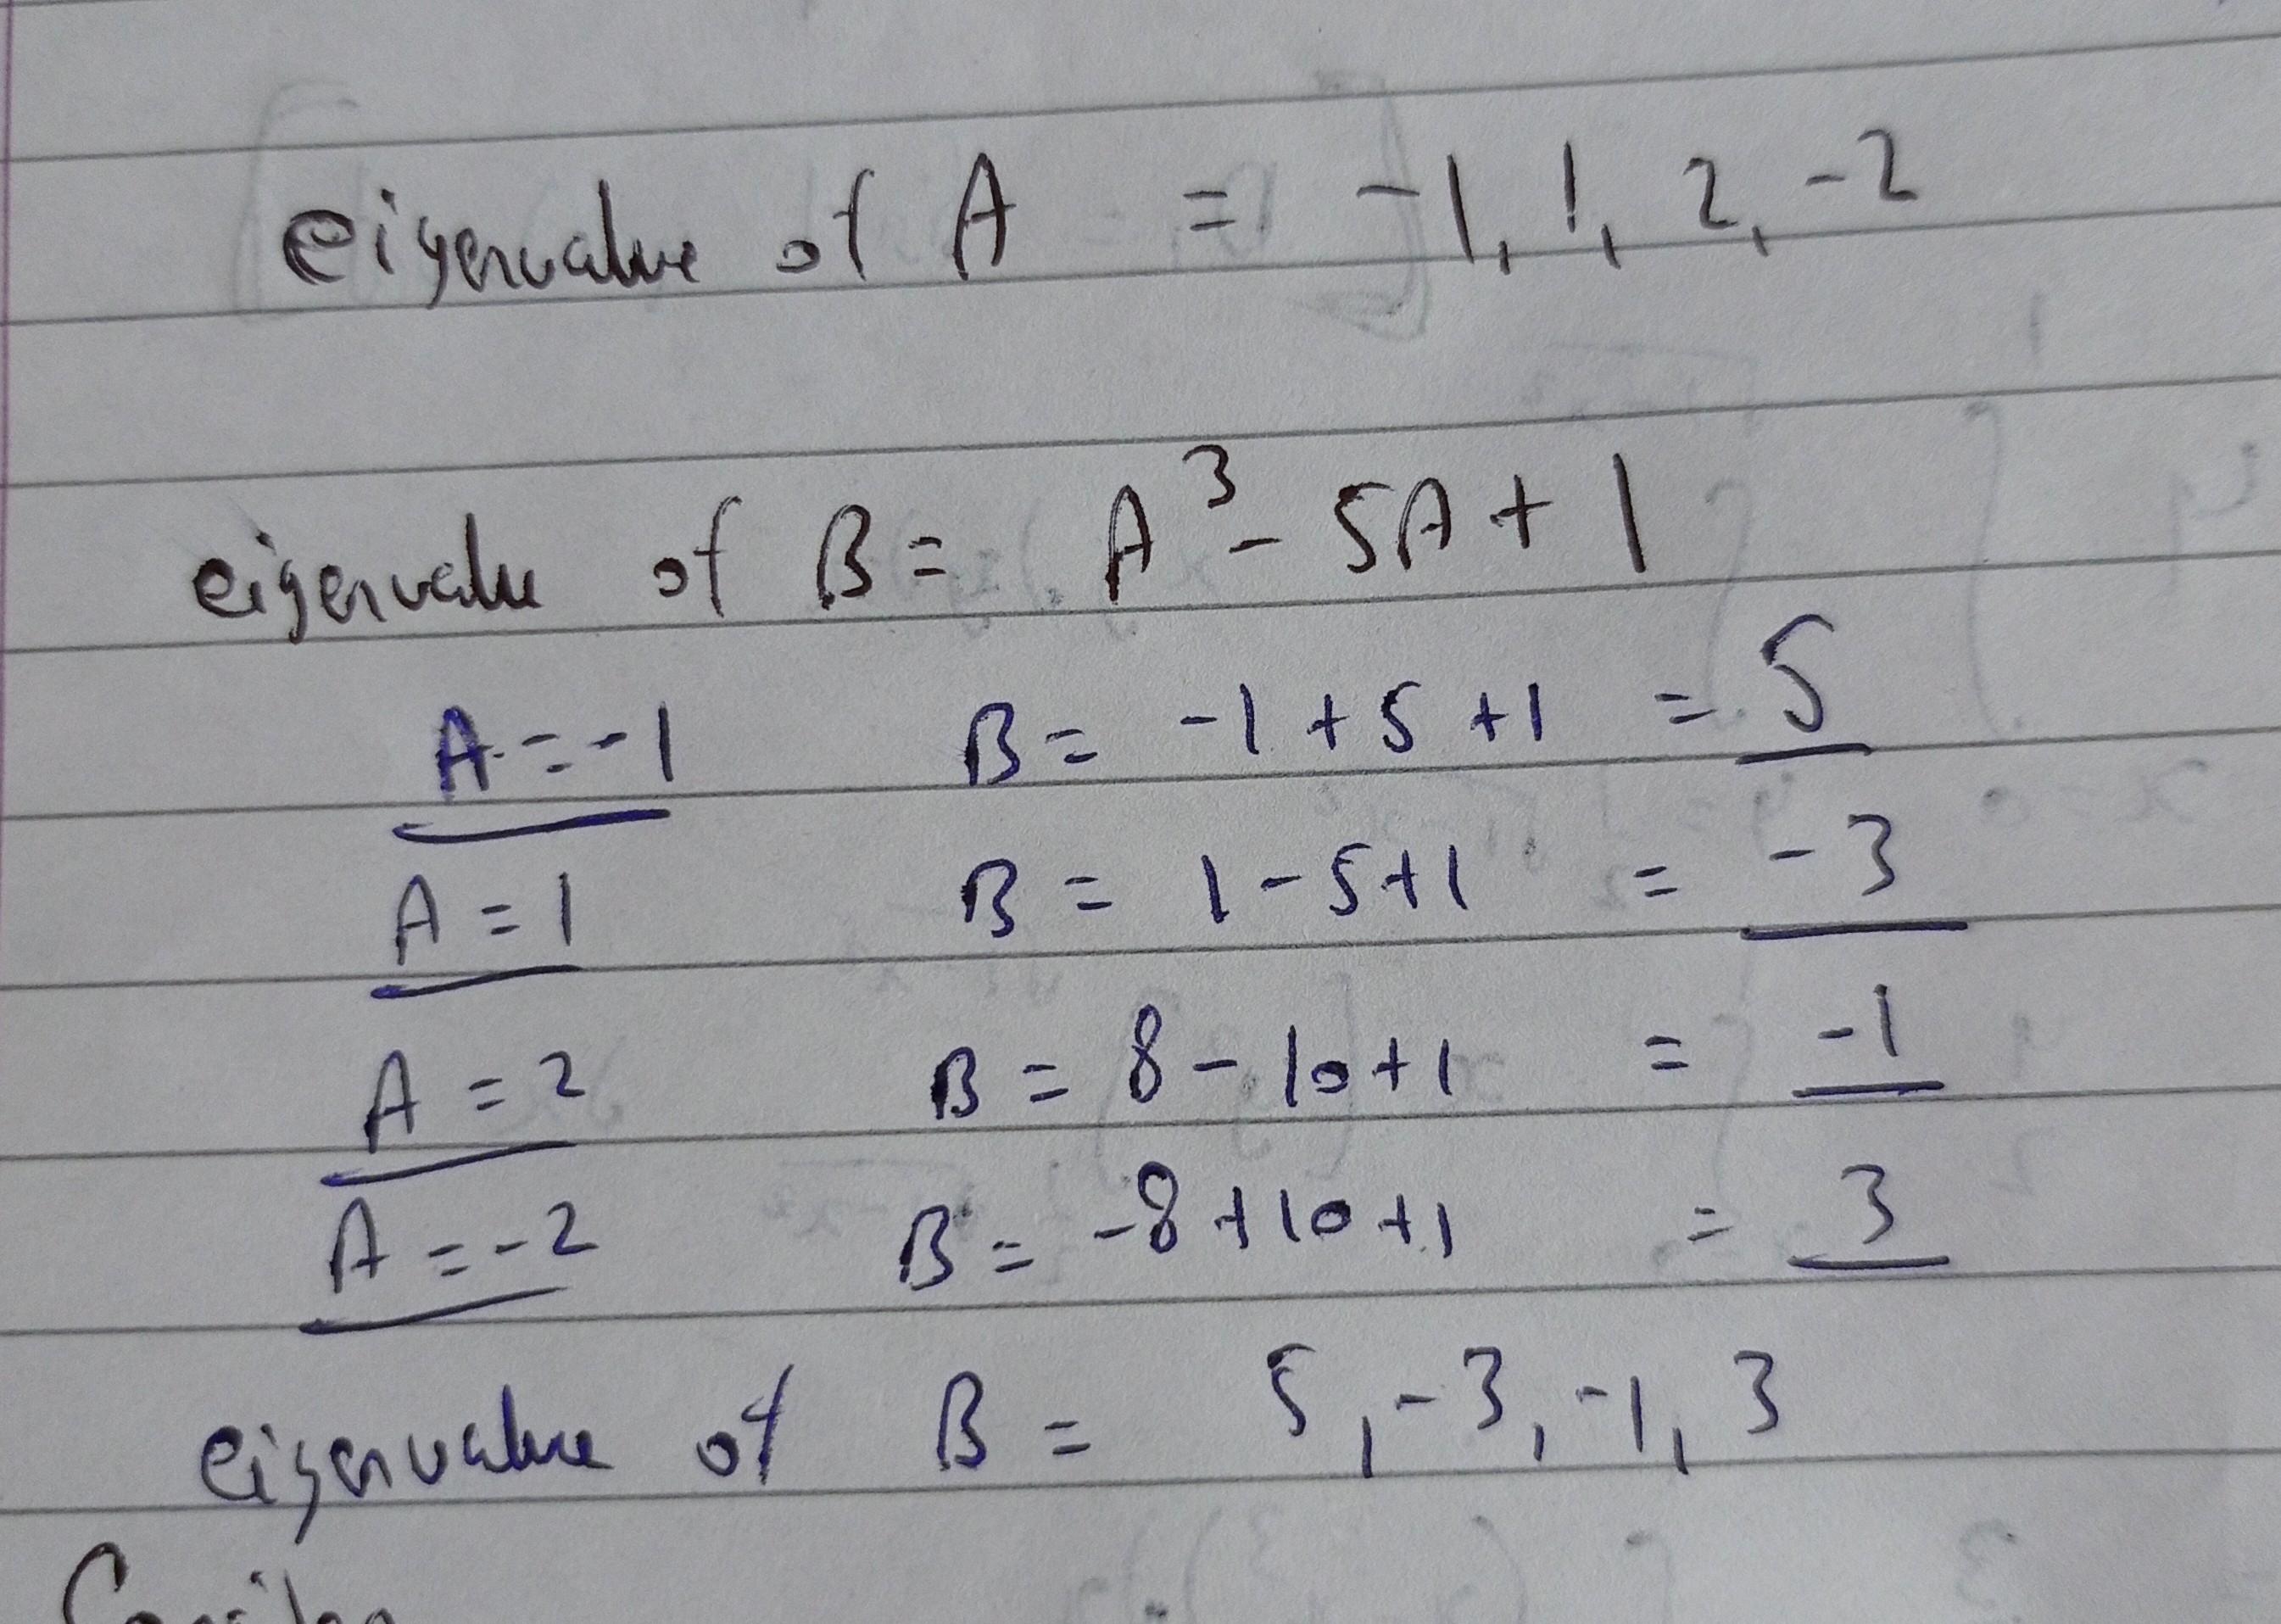 eigenvalue of A = -1, 1, 2, -2
eigenvalue of B = A³ - 5A + 1
A = -1 B = -1 + 5 + 1 = 5
A = 1 B = 1 - 5 + 1 = -3
A = 2 B = 8 - 10 + 1 = -1
A = -2 B = -8 + 10 + 1 = 3
eigenvalue of B = 5, -3, -1, 3